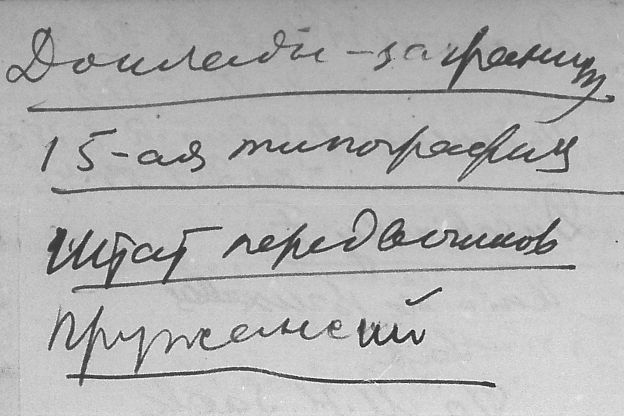 Доклады – заграниц
15-ая типография
Штат передвочиков
Пружанский